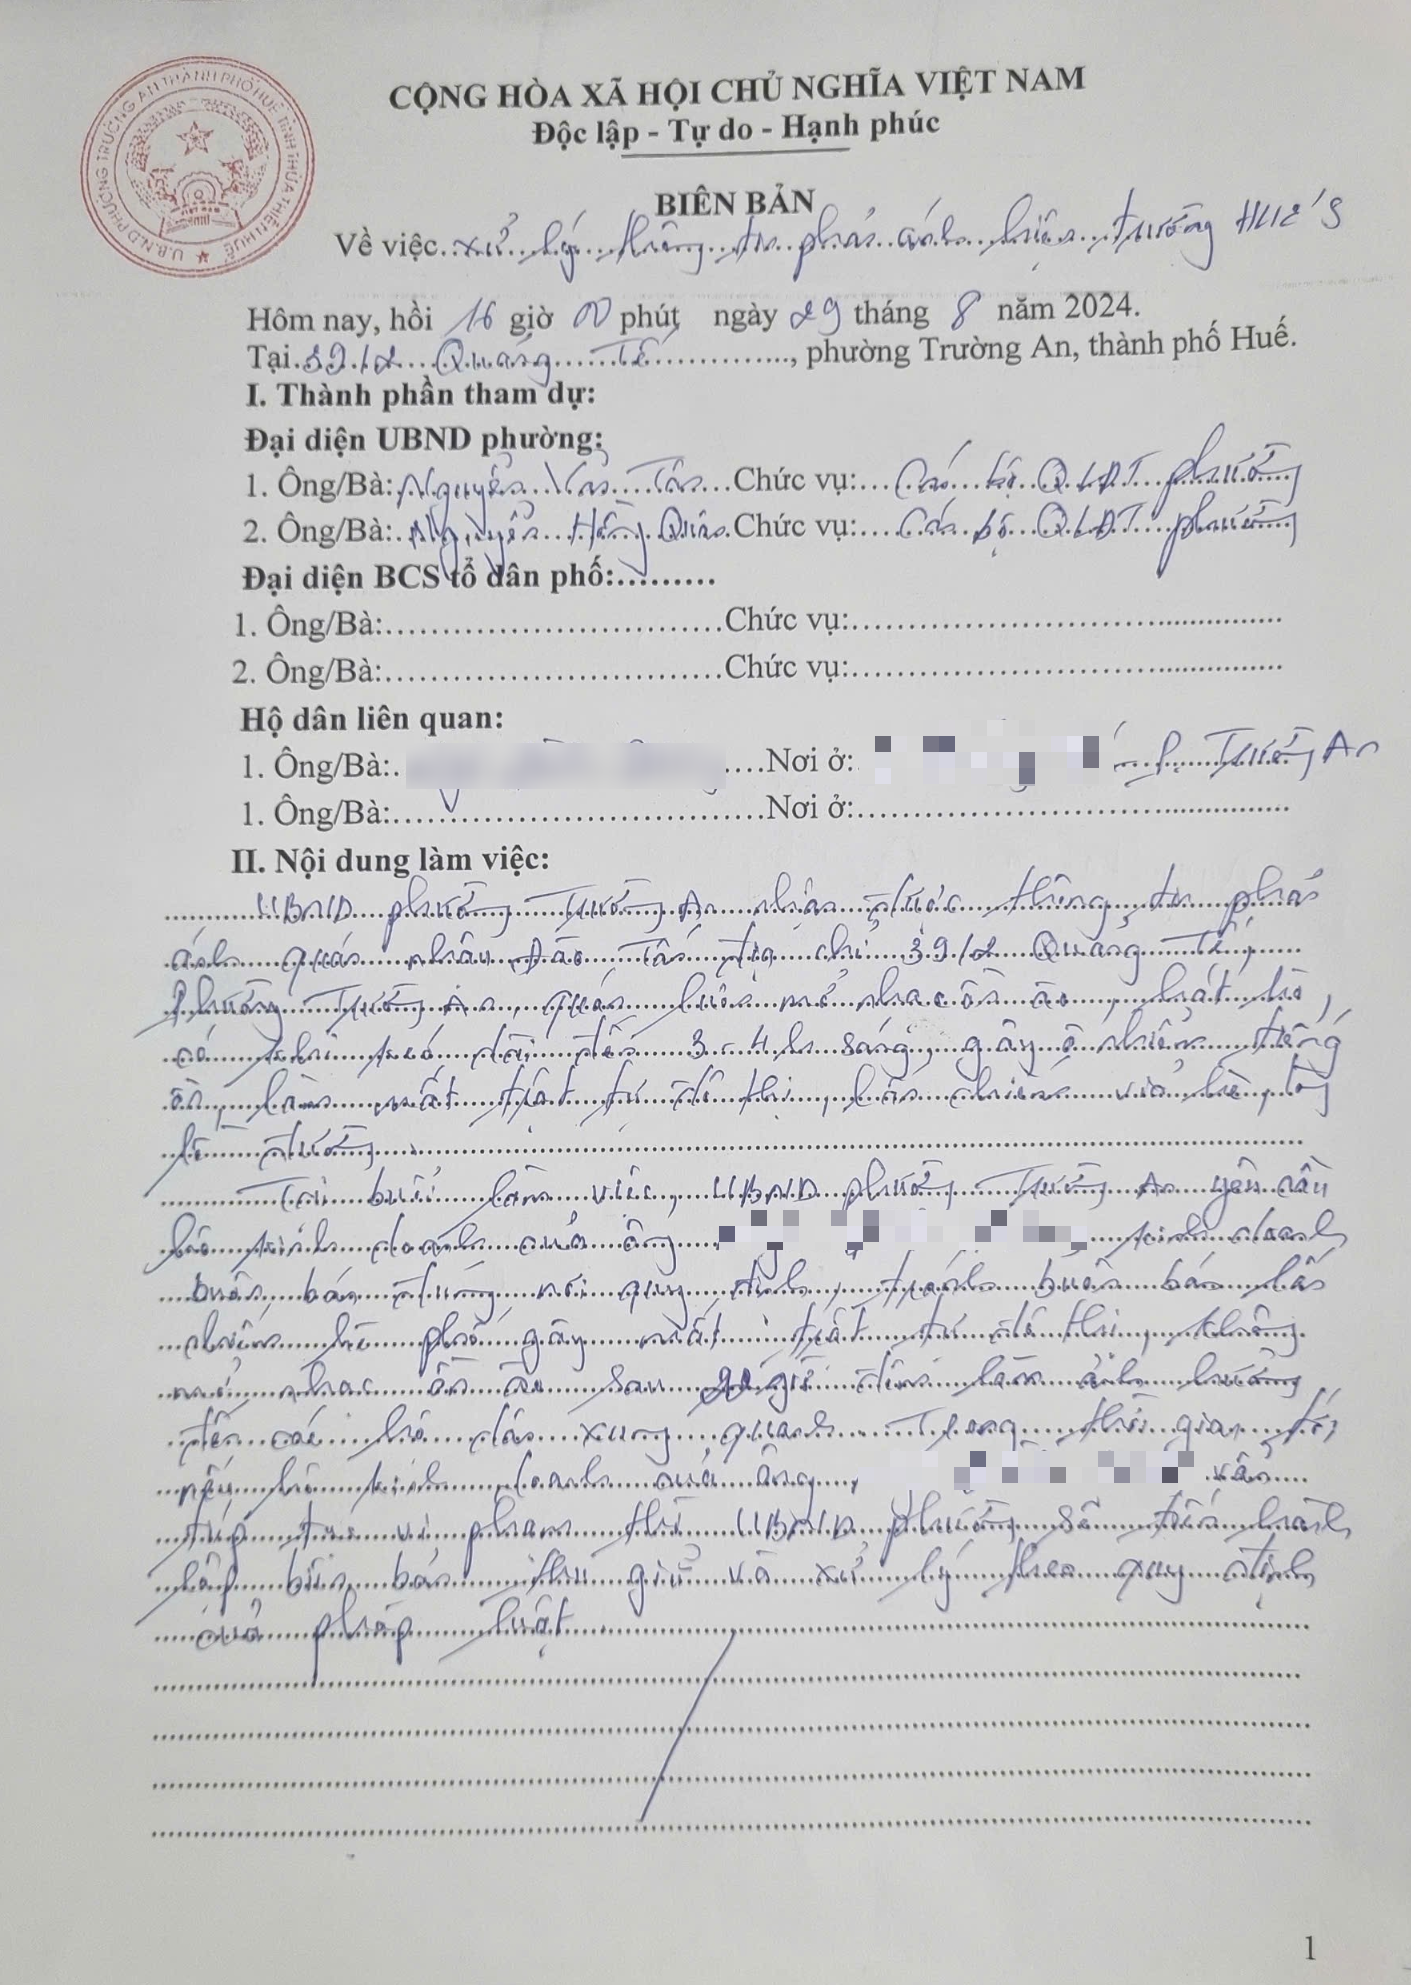 U.B.N.D PHƯỜNG TRƯỜNG AN THÀNH PHỐ HUẾ TỈNH THỪA THIÊN HUẾ
VIỆT NAM
CỘNG HÒA XÃ HỘI CHỦ NGHĨA VIỆT NAM
Độc lập - Tự do - Hạnh phúc
BIÊN BẢN
Về việc xử lý thông tin phản ánh hiện trường HUE'S
Hôm nay, hồi 16 giờ 00 phút ngày 29 tháng 8 năm 2024.
Tại 39/2 Quảng Tế, phường Trường An, thành phố Huế.
I. Thành phần tham dự:
Đại diện UBND phường:
1. Ông/Bà: Nguyễn Văn Tân Chức vụ: Cán bộ QLĐT phường
2. Ông/Bà: Nguyễn Hồng Chức vụ: Cán bộ QLĐT phường
Đại diện BCS tổ dân phố:.........
1. Ông/Bà: Chức vụ:
2. Ông/Bà: Chức vụ:
Hộ dân liên quan:
1. Ông/Bà: Nơi ở: P. Trường An
1. Ông/Bà: Nơi ở:
II. Nội dung làm việc:
UBND phường Trường An nhận được thông tin phản
ánh quán nhậu Đào Tấn địa chỉ 39/2 Quảng Tế,
Phường Trường An, quán luôn mở nhạc ồn ào, hát hò,
có khi kéo dài đến 3-4h sáng, gây ô nhiễm tiếng
ồn, làm mất trật tự đô thị, lấn chiếm vỉa hè, lòng
lề đường
Tại buổi làm việc, UBND phường Trường An yêu cầu
hộ kinh doanh của ông kinh doanh
buôn bán đúng nơi quy định, tránh buôn bán lấn
chiếm hè phố gây mất trật tự đô thị, không
mở nhạc ồn ào sau giờ đêm làm ảnh hưởng
đến các hộ dân xung quanh. Trong thời gian tới
nếu hộ kinh doanh của ông vẫn
tiếp tục vi phạm thì UBND phường sẽ tiến hành
lập biên bản thu giữ và xử lý theo quy định
của pháp luật
1